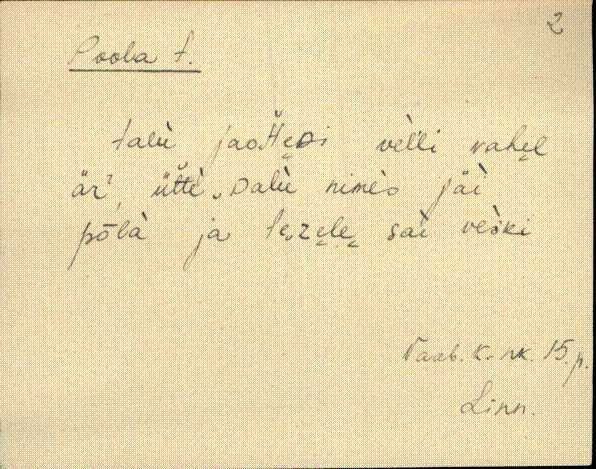 2
Poola t.
talù jaoťťeDi vèĺĺi vahel
är', üťťè Dalù nimès jäì
põlà ja tezele saì veski
k. nk. 15. p.
Linn.